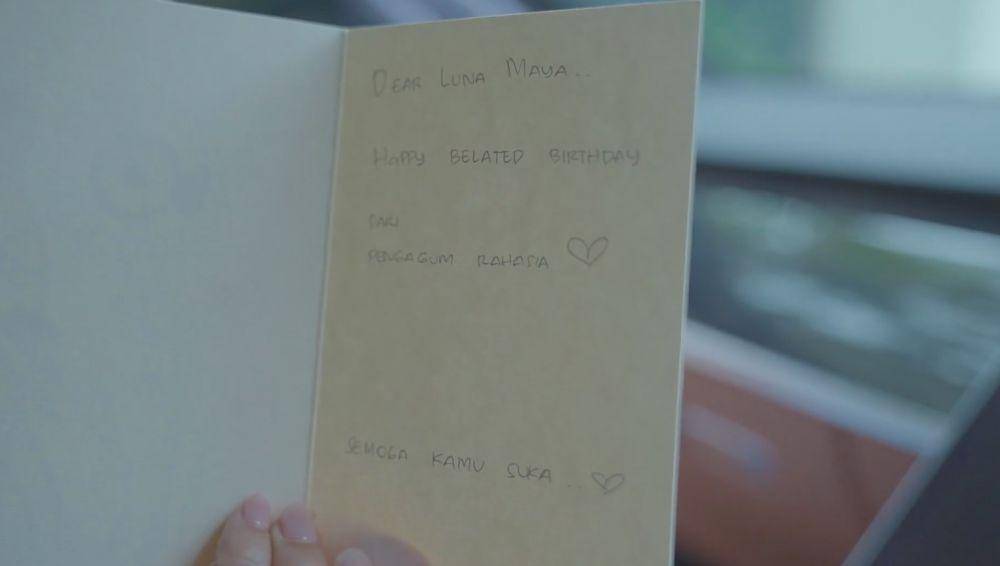 DEAR LUNA MAYA..
HAPPY BELATED BIRTHDAY
DARI
PENGAGUM RAHASIA
SEMOGA KAMU SUKA...